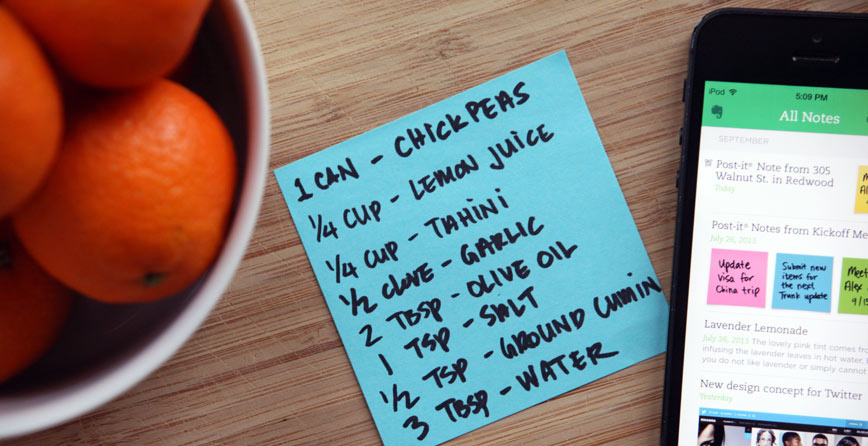 1 CAN - CHICKPEAS
1/4 CUP - LEMON JUICE
1/4 CUP - TAHINI
1/2 CLOVE - GARLIC
2 TBSP - OLIVE OIL
1 TSP - SALT
1/2 TSP - GROUND CUMIN
3 TBSP - WATER
iPod 5:09 PM
All Notes
SEPTEMBER
Post-it® Note from 305
Walnut St. in Redwood
Today
Post-it® Notes from Kickoff Me
July 26, 2013
Update
visa for
China trip
Submit new
items for
the next
Trunk update
Meet
Alex
9/15
Lavender Lemonade
July 26, 2013 The lovely pink tint comes from
infusing the lavender leaves in hot water. 
you do not like lavender or simply cannot
New design concept for Twitter
Yesterday